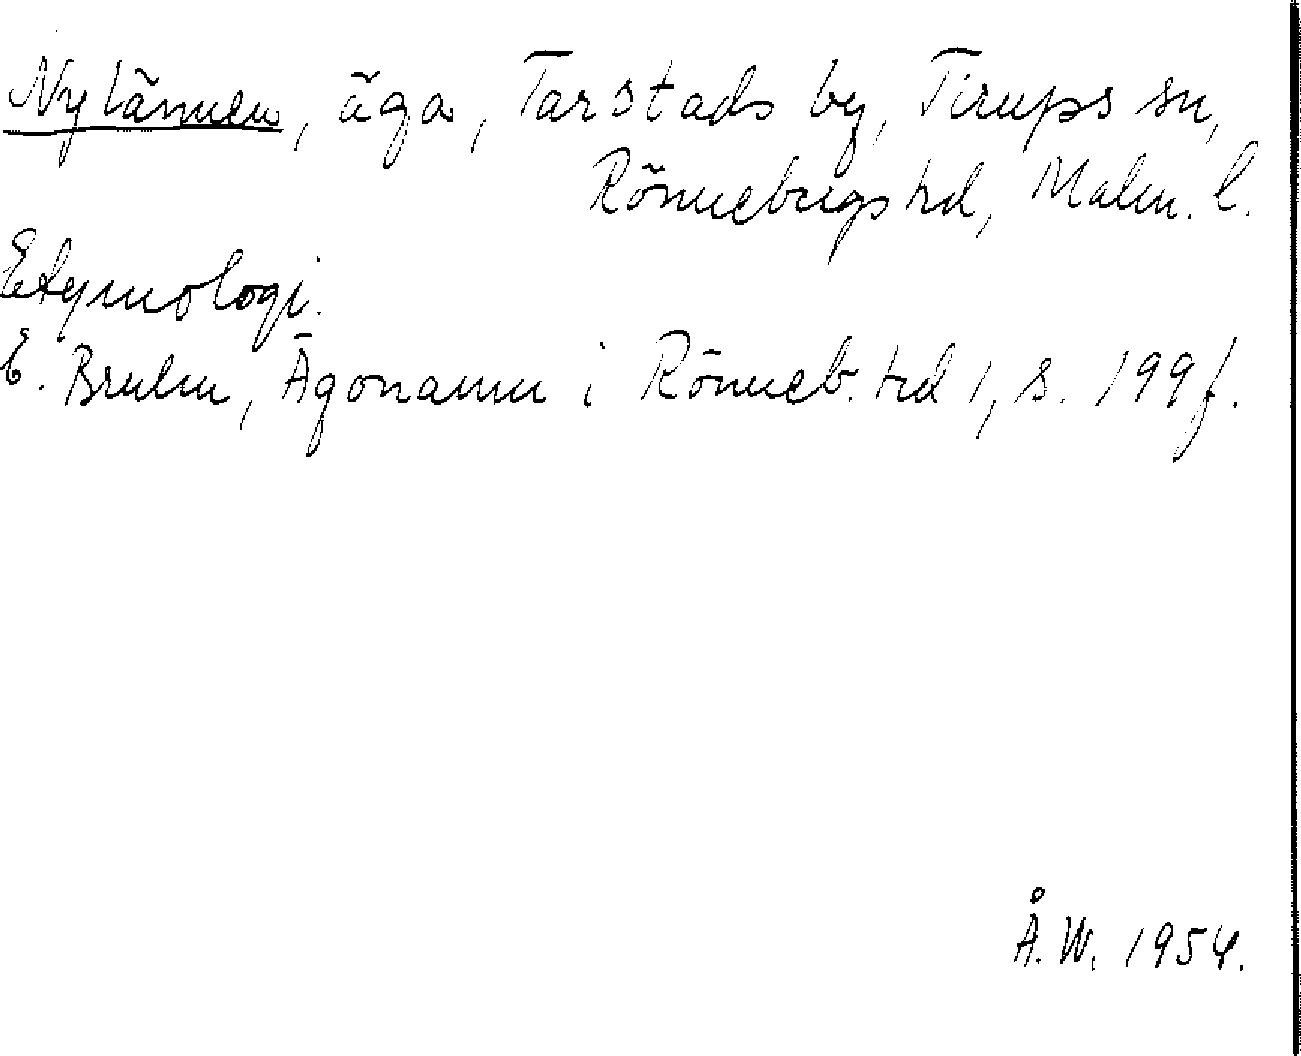 Nylännen, äga, Tarstads by, Tirups sn,
Rönnebergs hd, Malm. l.
Etymologi.
E. Bruhn, Ägonamn i Rönneb. hd 1, s. 199 f.
Å. W. 1954.